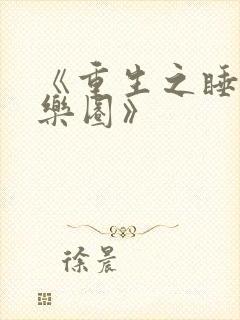 《重生之睡
樂園》
徐晨